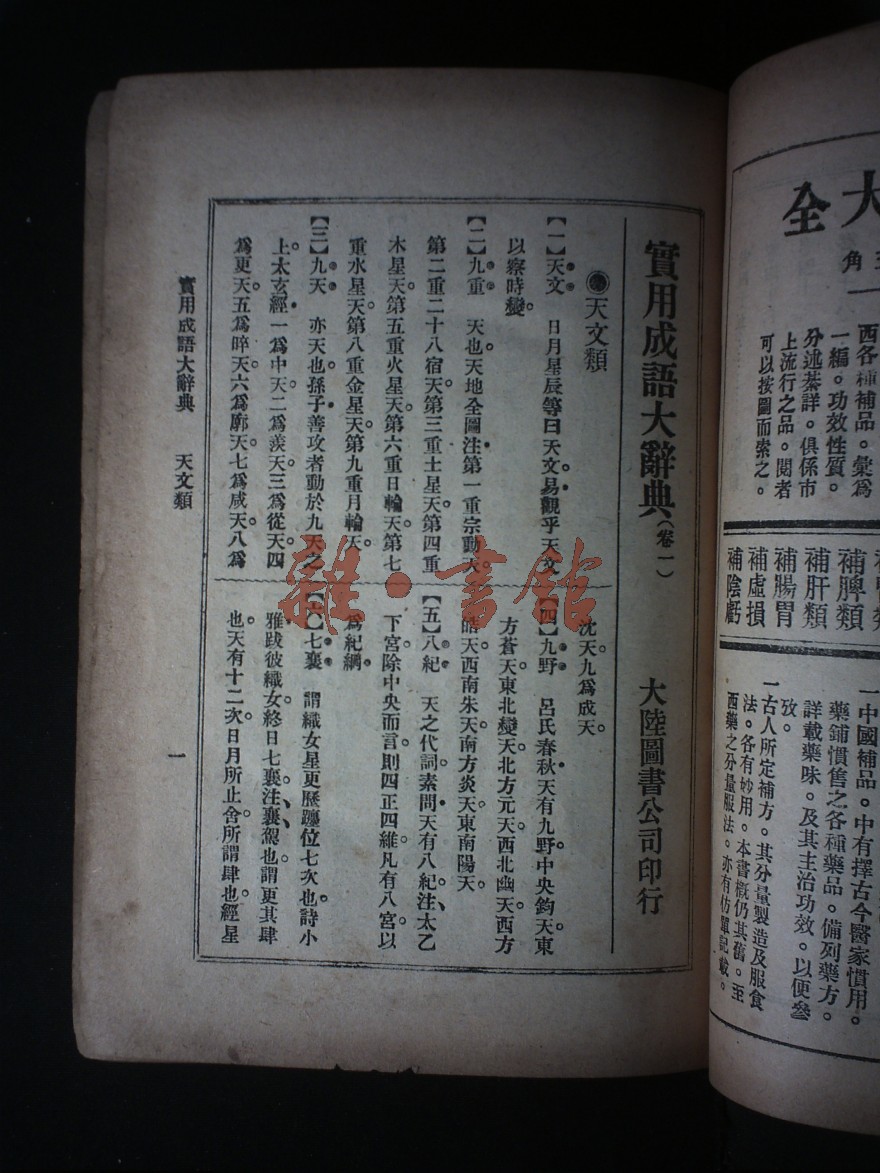 實用成語大辭典(卷一)
大陸圖書公司印行
天文類
【一】天文 日月星辰等曰天文。易觀乎天文
以察時變。
【二】九重 天也。天地全圖注第一重宗動天。
第二重二十八宿天。第三重土星天。第四重
木星天。第五重火星天。第六重日輪天。第七
重水星天。第八重金星天。第九重月輪天。
【三】九天 亦天也。孫子善攻者動於九天之
上。太玄經一爲中天。二爲羨天。三爲從天。四
爲更天。五爲晬天。六爲廓天。七爲咸天。八爲
沈天。九爲成天。
【四】九野 呂氏春秋天有九野。中央鈞天。東
方蒼天。東北變天。北方元天。西北幽天。西方
皓天。西南朱天。南方炎天。東南陽天。
【五】八紀 天之代詞。素問天有八紀。注、太乙
下宮除中央而言。則四正四維凡有八宮以
爲紀綱。
【六】七襄 謂織女星更歷躔位七次也。詩小
雅跂彼織女。終日七襄。注、襄、駕也。謂更其肆
也。天有十二次。日月所止舍所謂肆也。經星
實用成語大辭典 天文類
一
大
全
角
西各種補品。彙爲
一編。功效性質。
分述綦詳。俱係市
上流行之品。閱者
可以按圖而索之。
補脾類
補肝類
補腸胃
補虛損
補陰虧
一中國補品。中有擇古今醫家慣用。
藥鋪慣售之各種藥品。備列藥方。
詳載藥味。及其主治功效。以便參
攷。
一古人所定補方。其分量製造及服食
法。各有妙用。本書概仍其舊。至
西藥之分量服法。亦有仿單記載。
雜·書館